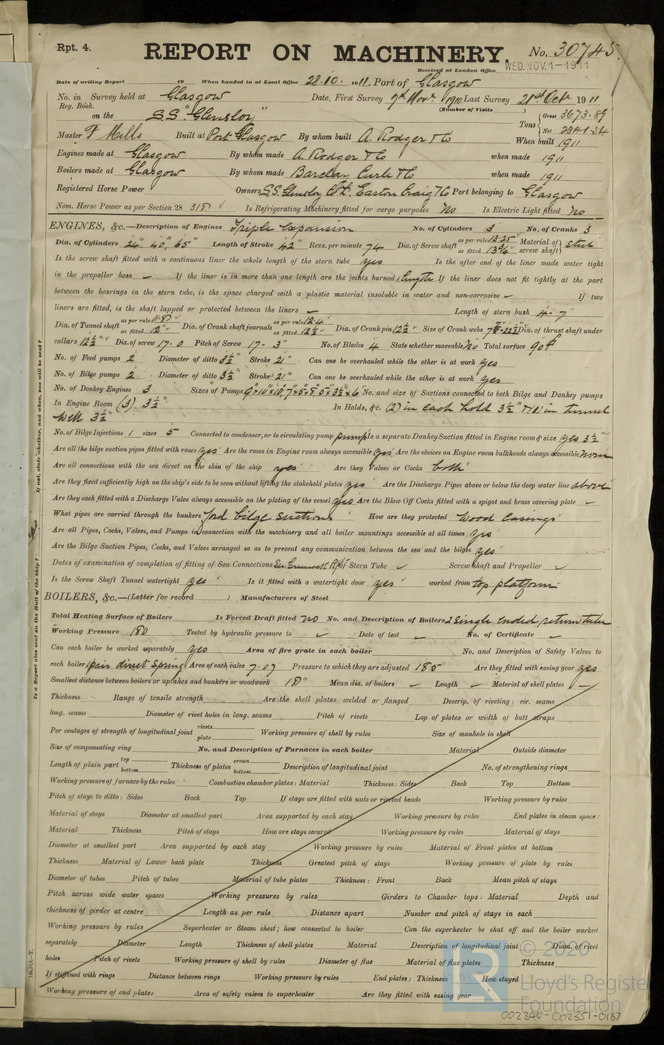 Rpt. 4.
REPORT ON MACHINERY.
No. 30745.
Received at London Office
WED. NOV. 1 - 1911
Date of writing Report 19 When handed in at Local Office 28.10. 1911, Port of Glasgow
No. in Survey held at Glasgow Date, First Survey 7th Nov. 1910 Last Survey 21st Oct 1911
Reg. Book.
(Number of Visits
on the S.S. "Glensloy" Tons Gross 3673.89
Net 2341.34
Master F Mills Built at Port Glasgow By whom built A. Rodger & Co When built 1911
Engines made at Glasgow By whom made A. Rodger & Co when made 1911
Boilers made at Glasgow By whom made Barclay Curle & Co when made 1911
Registered Horse Power Owners S.S. Glensloy Co Ld. Easton Craig & Co Port belonging to Glasgow
Nom. Horse Power as per Section 28 318 Is Refrigerating Machinery fitted for cargo purposes No Is Electric Light fitted No
ENGINES, &c.—Description of Engines Triple Expansion No. of Cylinders 3 No. of Cranks 3
Dia. of Cylinders 24", 40", 65" Length of Stroke 42" Revs. per minute 74 Dia. of Screw shaft as per rule 13.25 as fitted Material of screw shaft steel
Is the screw shaft fitted with a continuous liner the whole length of the stern tube yes Is the after end of the liner made water tight
in the propeller boss If the liner is in more than one length are the joints burned length If the liner does not fit tightly at the part
between the bearings in the stern tube, is the space charged with a plastic material insoluble in water and non-corrosive If two
liners are fitted, is the shaft lapped or protected between the liners Length of stern bush 4-7
Dia. of Tunnel shaft as per rule as fitted 12" Dia. of Crank shaft journals as per rule 12.4 as fitted 12½" Dia. of Crank pin 12½" Size of Crank webs Dia. of thrust shaft under
collars 12½" Dia. of screw 17-0 Pitch of Screw 17-3" No. of Blades 4 State whether moveable No Total surface 90
No. of Feed pumps 2 Diameter of ditto 3½" Stroke 21" Can one be overhauled while the other is at work yes
No. of Bilge pumps 2 Diameter of ditto 3½" Stroke 21" Can one be overhauled while the other is at work yes
No. of Donkey Engines 3 Sizes of Pumps No. and size of Suctions connected to both Bilge and Donkey pumps
In Engine Room (3) 3½" In Holds, &c. (2) in each hold 3½" & (1) in tunnel
well 3½"
No. of Bilge Injections 1 sizes 5 Connected to condenser, or to circulating pump pump Is a separate Donkey Suction fitted in Engine room & size yes 3½"
Are all the bilge suction pipes fitted with roses yes Are the roses in Engine room always accessible yes Are the sluices on Engine room bulkheads always accessible none
Are all connections with the sea direct on the skin of the ship yes Are they Valves or Cocks both
Are they fixed sufficiently high on the ship's side to be seen without lifting the stokehold plates yes Are the Discharge Pipes above or below the deep water line above
Are they each fitted with a Discharge Valve always accessible on the plating of the vessel yes Are the Blow Off Cocks fitted with a spigot and brass covering plate
What pipes are carried through the bunkers ford bilge suctions How are they protected Wood casings
Are all Pipes, Cocks, Valves, and Pumps in connection with the machinery and all boiler mountings accessible at all times yes
Are the Bilge Suction Pipes, Cocks, and Valves arranged so as to prevent any communication between the sea and the bilges yes
Dates of examination of completion of fitting of Sea Connections See Greenock Rpt Stern Tube Screw shaft and Propeller
Is the Screw Shaft Tunnel watertight yes Is it fitted with a watertight door yes worked from top platform
BOILERS, &c.—(Letter for record ) Manufacturers of Steel
Total Heating Surface of Boilers Is Forced Draft fitted no No. and Description of Boilers 2 Single ended return tube
Working Pressure 180 Tested by hydraulic pressure to Date of test No. of Certificate
Can each boiler be worked separately yes Area of fire grate in each boiler No. and Description of Safety Valves to
each boiler pair direct spring Area of each valve 7.07 Pressure to which they are adjusted 185 Are they fitted with easing gear yes
Smallest distance between boilers or uptakes and bunkers or woodwork 18" Mean dia. of boilers Length Material of shell plates
Thickness Range of tensile strength Are the shell plates welded or flanged Descrip. of riveting: cir. seams
long. seams Diameter of rivet holes in long. seams Pitch of rivets Lap of plates or width of butt straps
Per centages of strength of longitudinal joint rivets plate Working pressure of shell by rules Size of manhole in shell
Size of compensating ring No. and Description of Furnaces in each boiler Material Outside diameter
Length of plain part top bottom Thickness of plates crown bottom Description of longitudinal joint No. of strengthening rings
Working pressure of furnace by the rules Combustion chamber plates: Material Thickness: Sides Back Top Bottom
Pitch of stays to ditto: Sides Back Top If stays are fitted with nuts or riveted heads Working pressure by rules
Material of stays Diameter at smallest part Area supported by each stay Working pressure by rules End plates in steam space:
Material Thickness Pitch of stays How are stays secured Working pressure by rules Material of stays
Diameter at smallest part Area supported by each stay Working pressure by rules Material of Front plates at bottom
Thickness Material of Lower back plate Thickness Greatest pitch of stays Working pressure of plate by rules
Diameter of tubes Pitch of tubes Material of tube plates Thickness: Front Back Mean pitch of stays
Pitch across wide water spaces Working pressures by rules Girders to Chamber tops: Material Depth and
thickness of girder at centre Length as per rule Distance apart Number and pitch of stays in each
Working pressure by rules Superheater or Steam chest; how connected to boiler Can the superheater be shut off and the boiler worked
separately Diameter Length Thickness of shell plates Material Description of longitudinal joint Diam. of rivet
holes Pitch of rivets Working pressure of shell by rules Diameter of flue Material of flue plates Thickness
If stiffened with rings Distance between rings Working pressure by rules End plates: Thickness How stayed
Working pressure of end plates Area of safety valves to superheater Are they fitted with easing gear
© 2020
Lloyd's Register
Foundation
002340-002351-0187